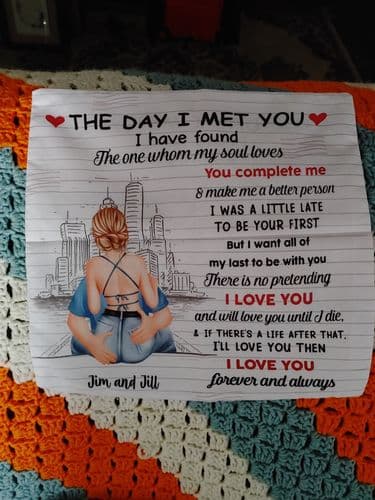 THE DAY I MET YOU
I have found
The one whom my soul loves
You complete me
& make me a better person
I WAS A LITTLE LATE
TO BE YOUR FIRST
But I want all of
my last to be with you
There is no pretending
I LOVE YOU
and will love you until I die,
& IF THERE'S A LIFE AFTER THAT,
I'LL LOVE YOU THEN
I LOVE YOU
forever and always
Jim and Jill